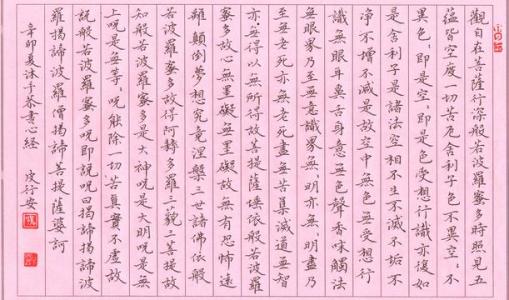 觀自在菩薩行深般若波羅蜜多時照見五
蘊皆空度一切苦厄舍利子色不異空:不
異色:即是空:即是色受想行識亦復如
是舍利子是諸法空相不生不滅不垢不
淨不增不減是故空中無色無受想行
識無眼耳鼻舌身意無色聲香味觸法
無眼界乃至無意識界無:明亦無:明盡乃
至無老死亦無老死盡無苦集滅道無智
亦無得以無所得故菩提薩埵依般若波羅
蜜多故心無罣礙無罣礙故無有恐怖遠
離顛倒夢想究竟涅槃三世諸佛依般
若波羅蜜多故得阿耨多羅三藐三菩提故
知般若波羅蜜多是大神呪是大明呪是無
上呪是無等:呪能除一切苦真實不虛故
說般若波羅蜜多呪即說呪曰揭諦揭諦波
羅揭諦波羅僧揭諦菩提薩婆訶
辛卯夏沐手恭書心經 皮行安